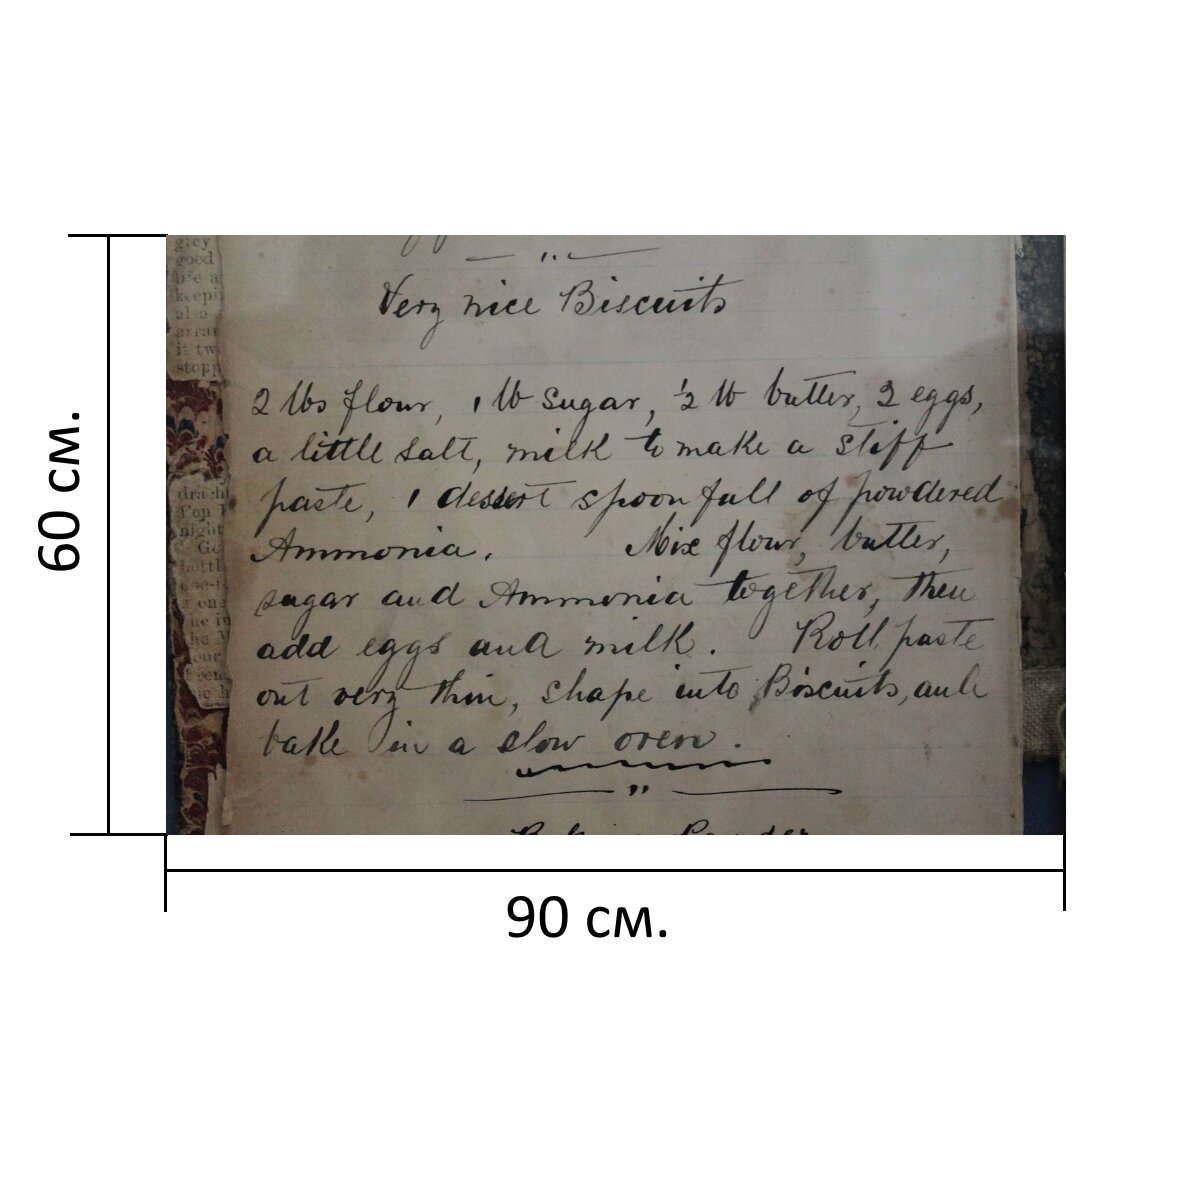 grey
good
keepi
also
arrar
it tw
stopp
Very nice Biscuits
2 lbs flour, 1 lb sugar, ½ lb butter, 2 eggs,
a little salt, milk to make a stiff
paste, 1 dessert spoon full of powdered
Ammonia. Mix flour, butter,
sugar and Ammonia together, then
add eggs and milk. Roll paste
out very thin, shape into Biscuits, and
bake in a slow oven.
60 см.
90 см.